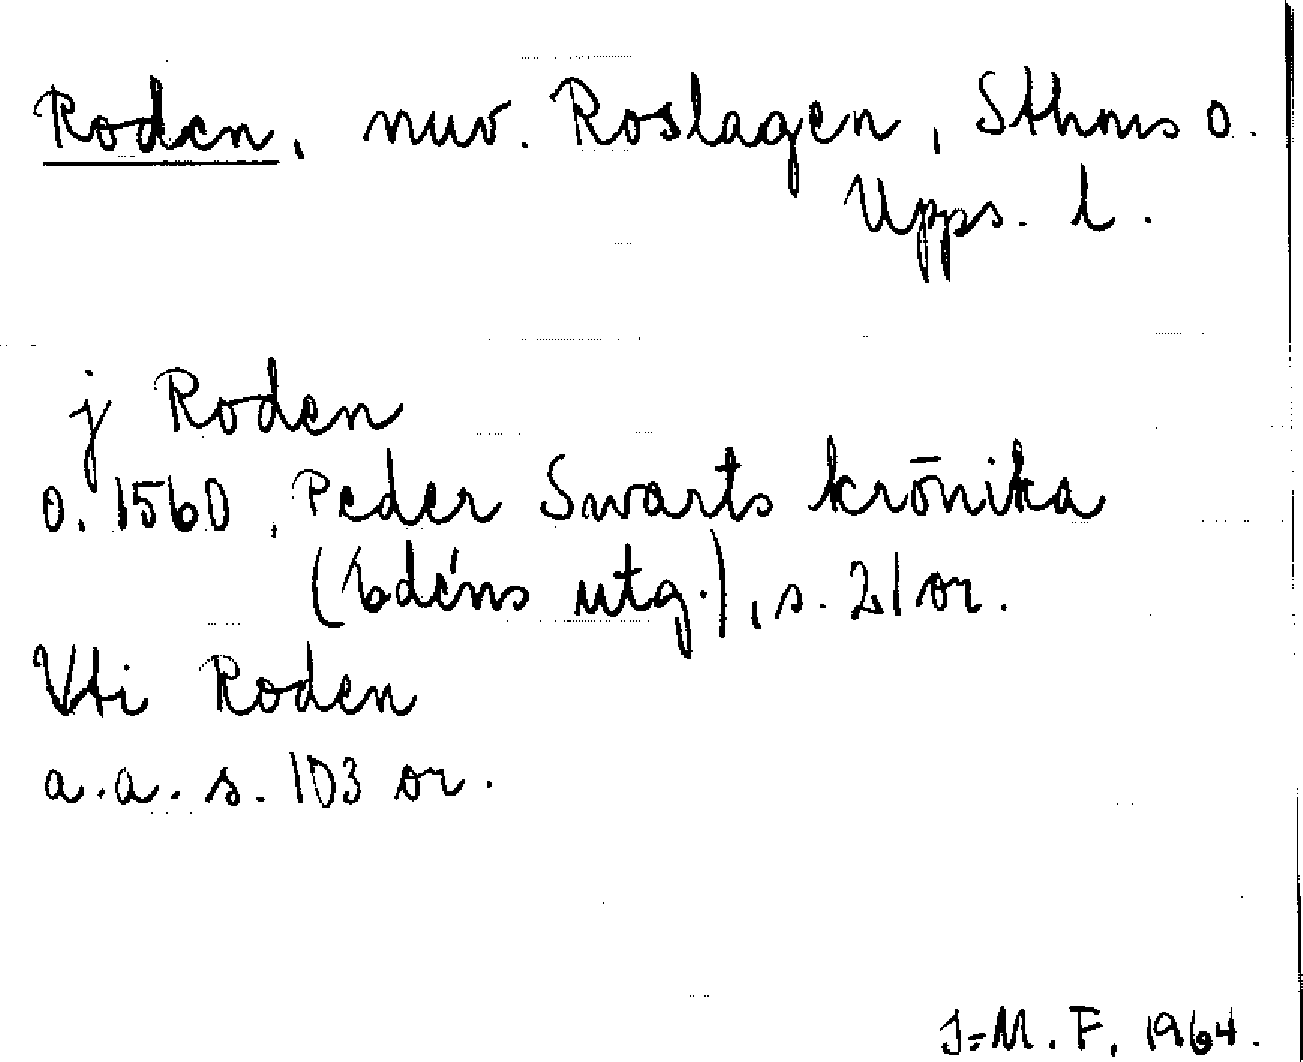 Roden, nuv. Roslagen, Sthms o.
Upps. l.
j Roden
o. 1560, Peder Swarts krönika
(Edéns utg.), s. 21 or.
Vti Roden
a.a. s. 103 or.
J-M. F. 1964.